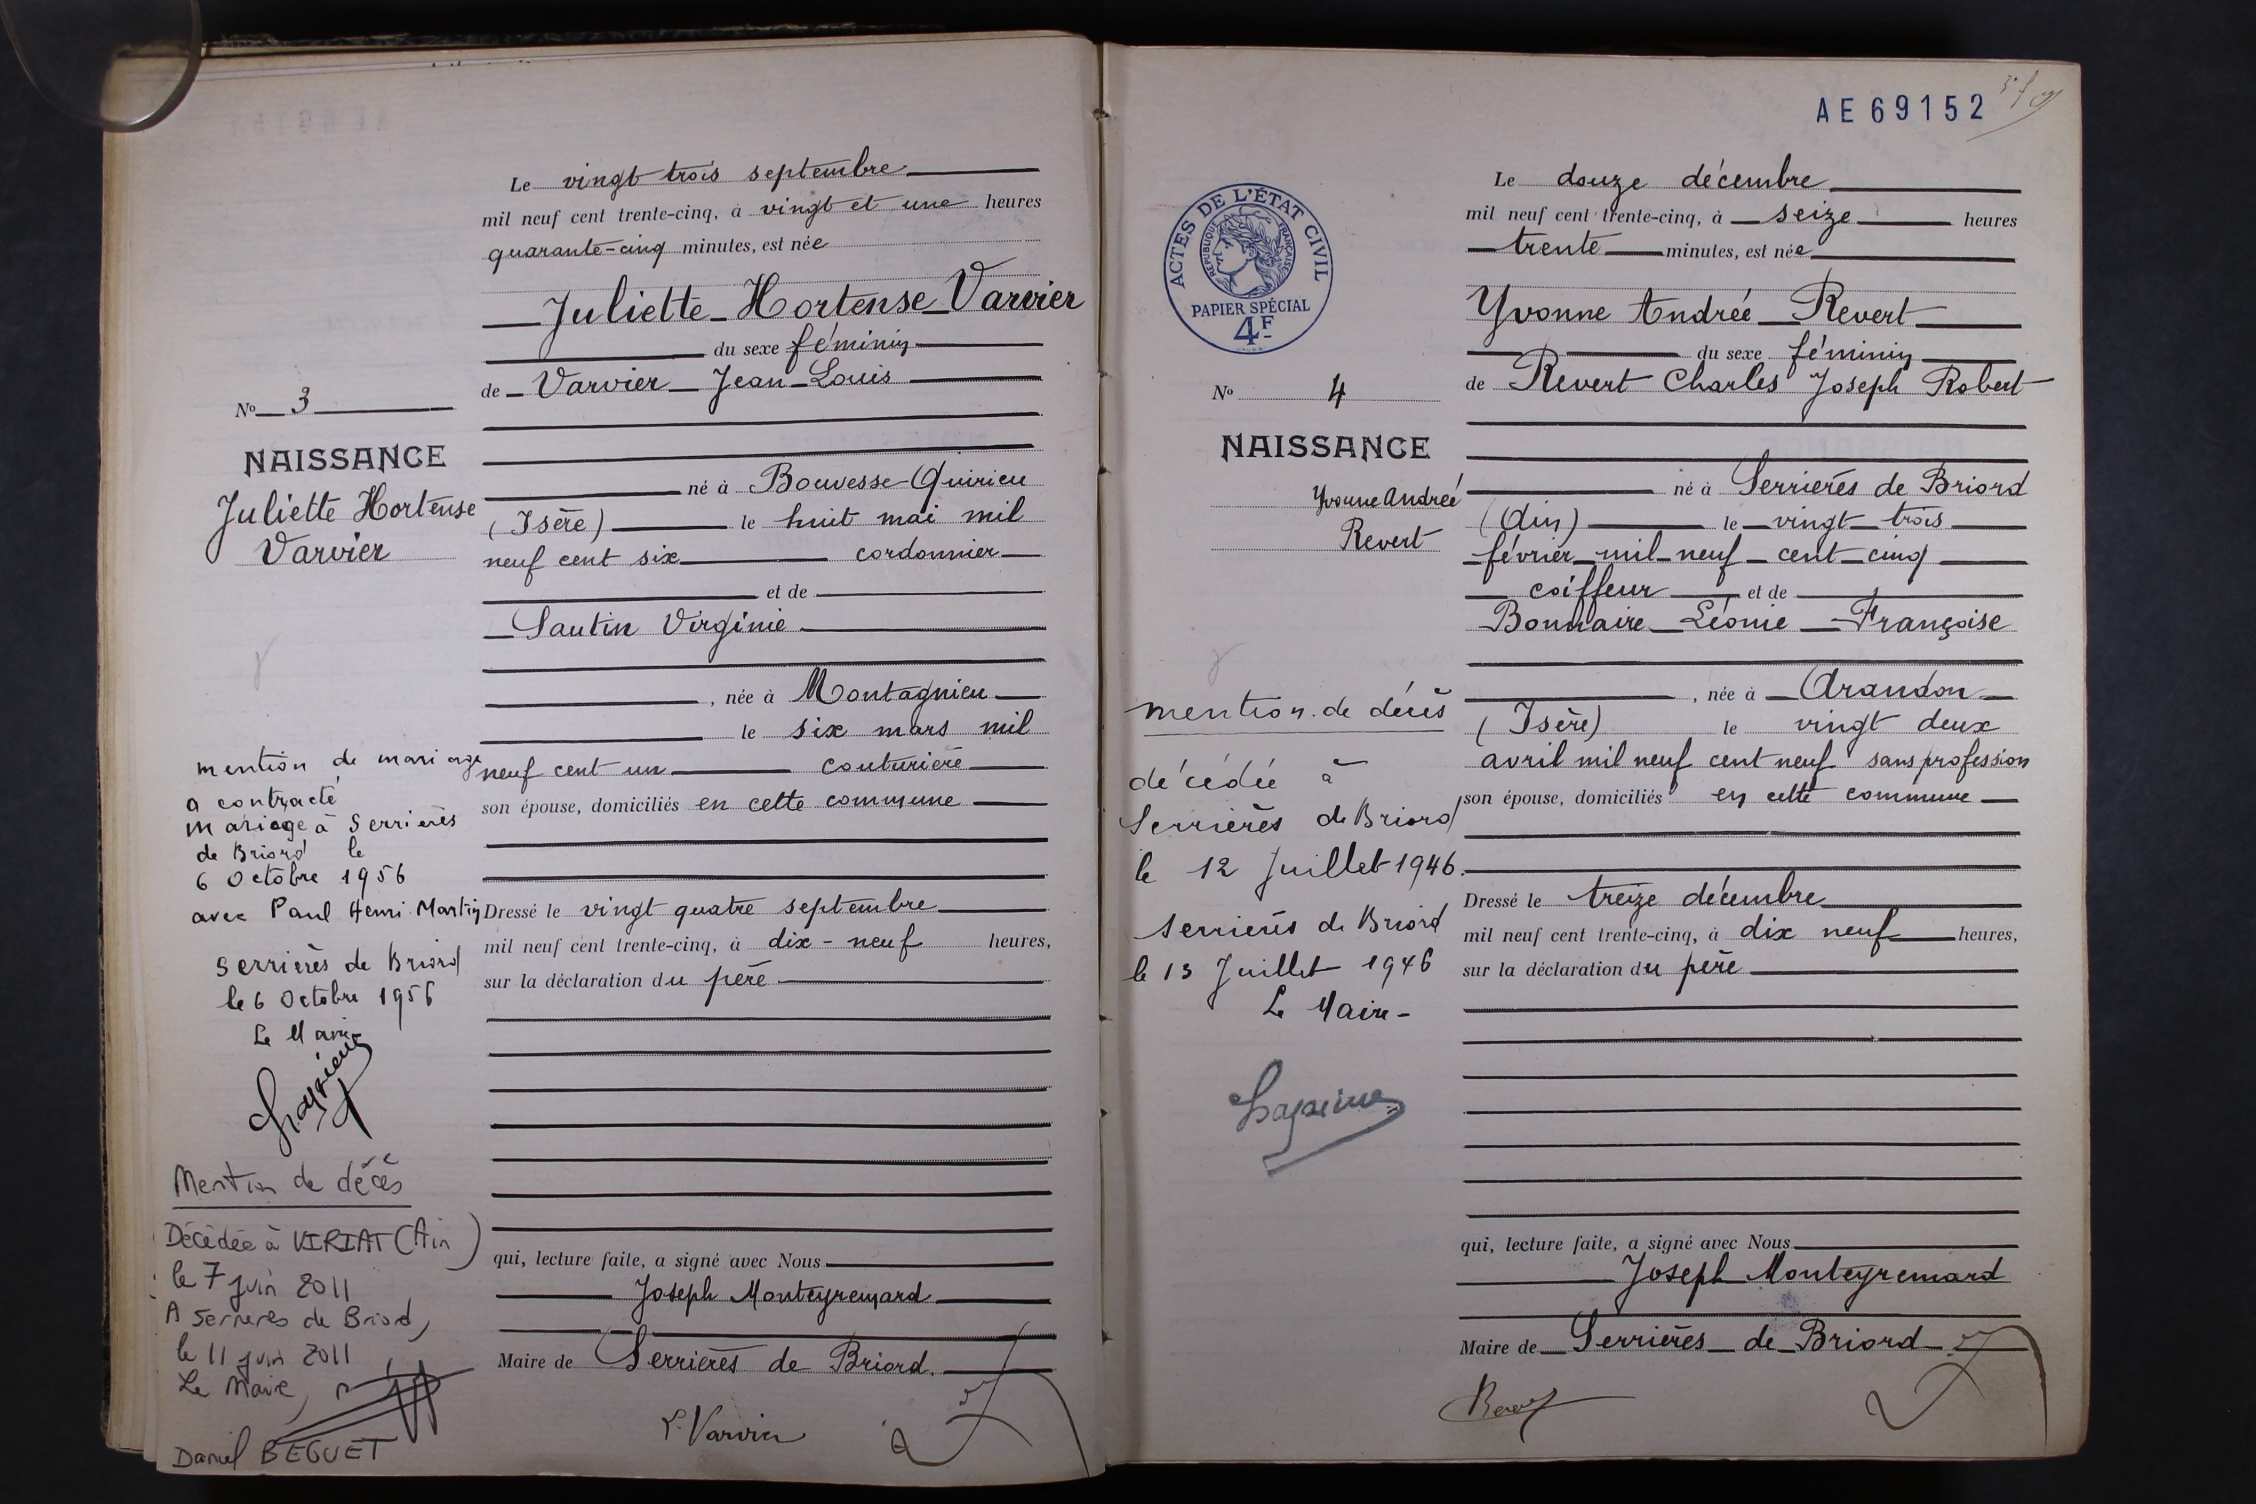 Le vingt trois septembre
mil neuf cent trente-cinq, à vingt et une heures
quarante-cinq minutes, est née
Juliette Hortense Varvier
du sexe féminin
de Varvier Jean Louis
No 3
NAISSANCE
Juliette Hortense
Varvier
né à Bouvesse-Quirieu
(Isère) le huit mai mil
neuf cent six cordonnier
et de
Sautin Virginie
, née à Montagnieu
le six mars mil
neuf cent un couturière
son épouse, domiciliés en cette commune
Dressé le vingt quatre septembre
mil neuf cent trente-cinq, à dix-neuf heures,
sur la déclaration du père
qui, lecture faite, a signé avec Nous
Joseph Monteyremard
Maire de Serrières de Briord.
Varvier
mention de mariage
a contracté
mariage à Serrières
de Briord le
6 Octobre 1956
avec Paul Henri Martin
Serrières de Briord
le 6 Octobre 1956
Le Maire
Mention de décès
Décédée à VIRIAT (Ain)
le 7 juin 2011
A Serrières de Briord,
le 11 juin 2011
Le Maire,
Daniel BEGUET
AE 69152
ACTES DE L'ÉTAT CIVIL
RÉPUBLIQUE FRANÇAISE
PAPIER SPÉCIAL
4F
Le douze décembre
mil neuf cent trente-cinq, à seize heures
trente minutes, est née
Yvonne Andrée Revert
du sexe féminin
de Revert Charles Joseph Robert
No 4
NAISSANCE
Yvonne Andreé
Revert
né à Serrières de Briord
(Ain) le vingt trois
février mil neuf cent cinq
coiffeur et de
Bonnaire Léonie Françoise
, née à Arandon
(Isère) le vingt deux
avril mil neuf cent neuf sans profession
son épouse, domiciliés en cette commune
Dressé le treize décembre
mil neuf cent trente-cinq, à dix neuf heures,
sur la déclaration du père
qui, lecture faite, a signé avec Nous
Joseph Monteyremard
Maire de Serrières de Briord
mention de décès
décédée à
Serrières de Briord
le 12 Juillet 1946.
Serrières de Briord
le 13 Juillet 1946
Le Maire-